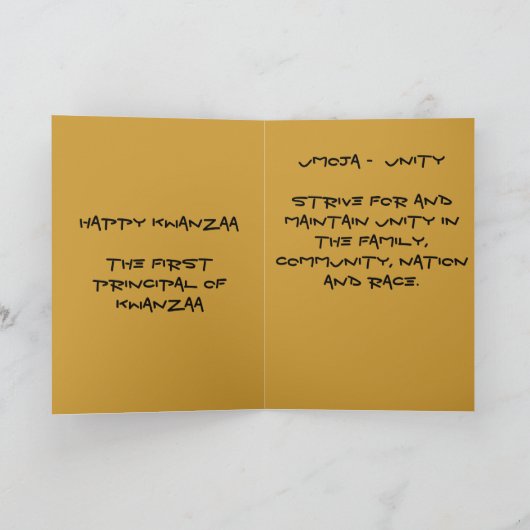 HAPPY KWANZAA
THE FIRST
PRINCIPAL OF
KWANZAA
UMOJA - UNITY
STRIVE FOR AND
MAINTAIN UNITY IN
THE FAMILY,
COMMUNITY, NATION
AND RACE.